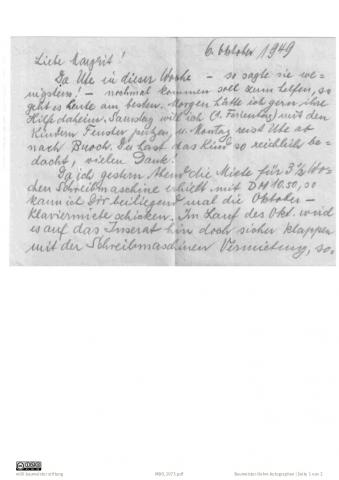 6. Oktober 1949
Liebe Margrit!
Da Ute in dieser Woche – so sagte sie we-
nigstens! – nochmal kommen soll zum helfen, so
geht es heute am besten. Morgen hätte ich gern ihre
Hilfe daheim. Samstag will ich (1. Ferientag) mit den
Kindern Fenster putzen u. Montag reist Ute ab
nach Buoch. Du hast das Kind so reichlich be-
dacht, vielen Dank!
Da ich gestern Abend die Miete für 3½ Wo-
chen Schreibmaschine erhielt mit DM 10.50, so
kann ich Dir beiliegend mal die Oktober-
klaviermiete schicken. Im Lauf des Okt. wird
es auf das Inserat hin doch sicher klappen
mit der Schreibmaschinen Vermietung, so.
willi baumeister stiftung
Seite 1 von 2